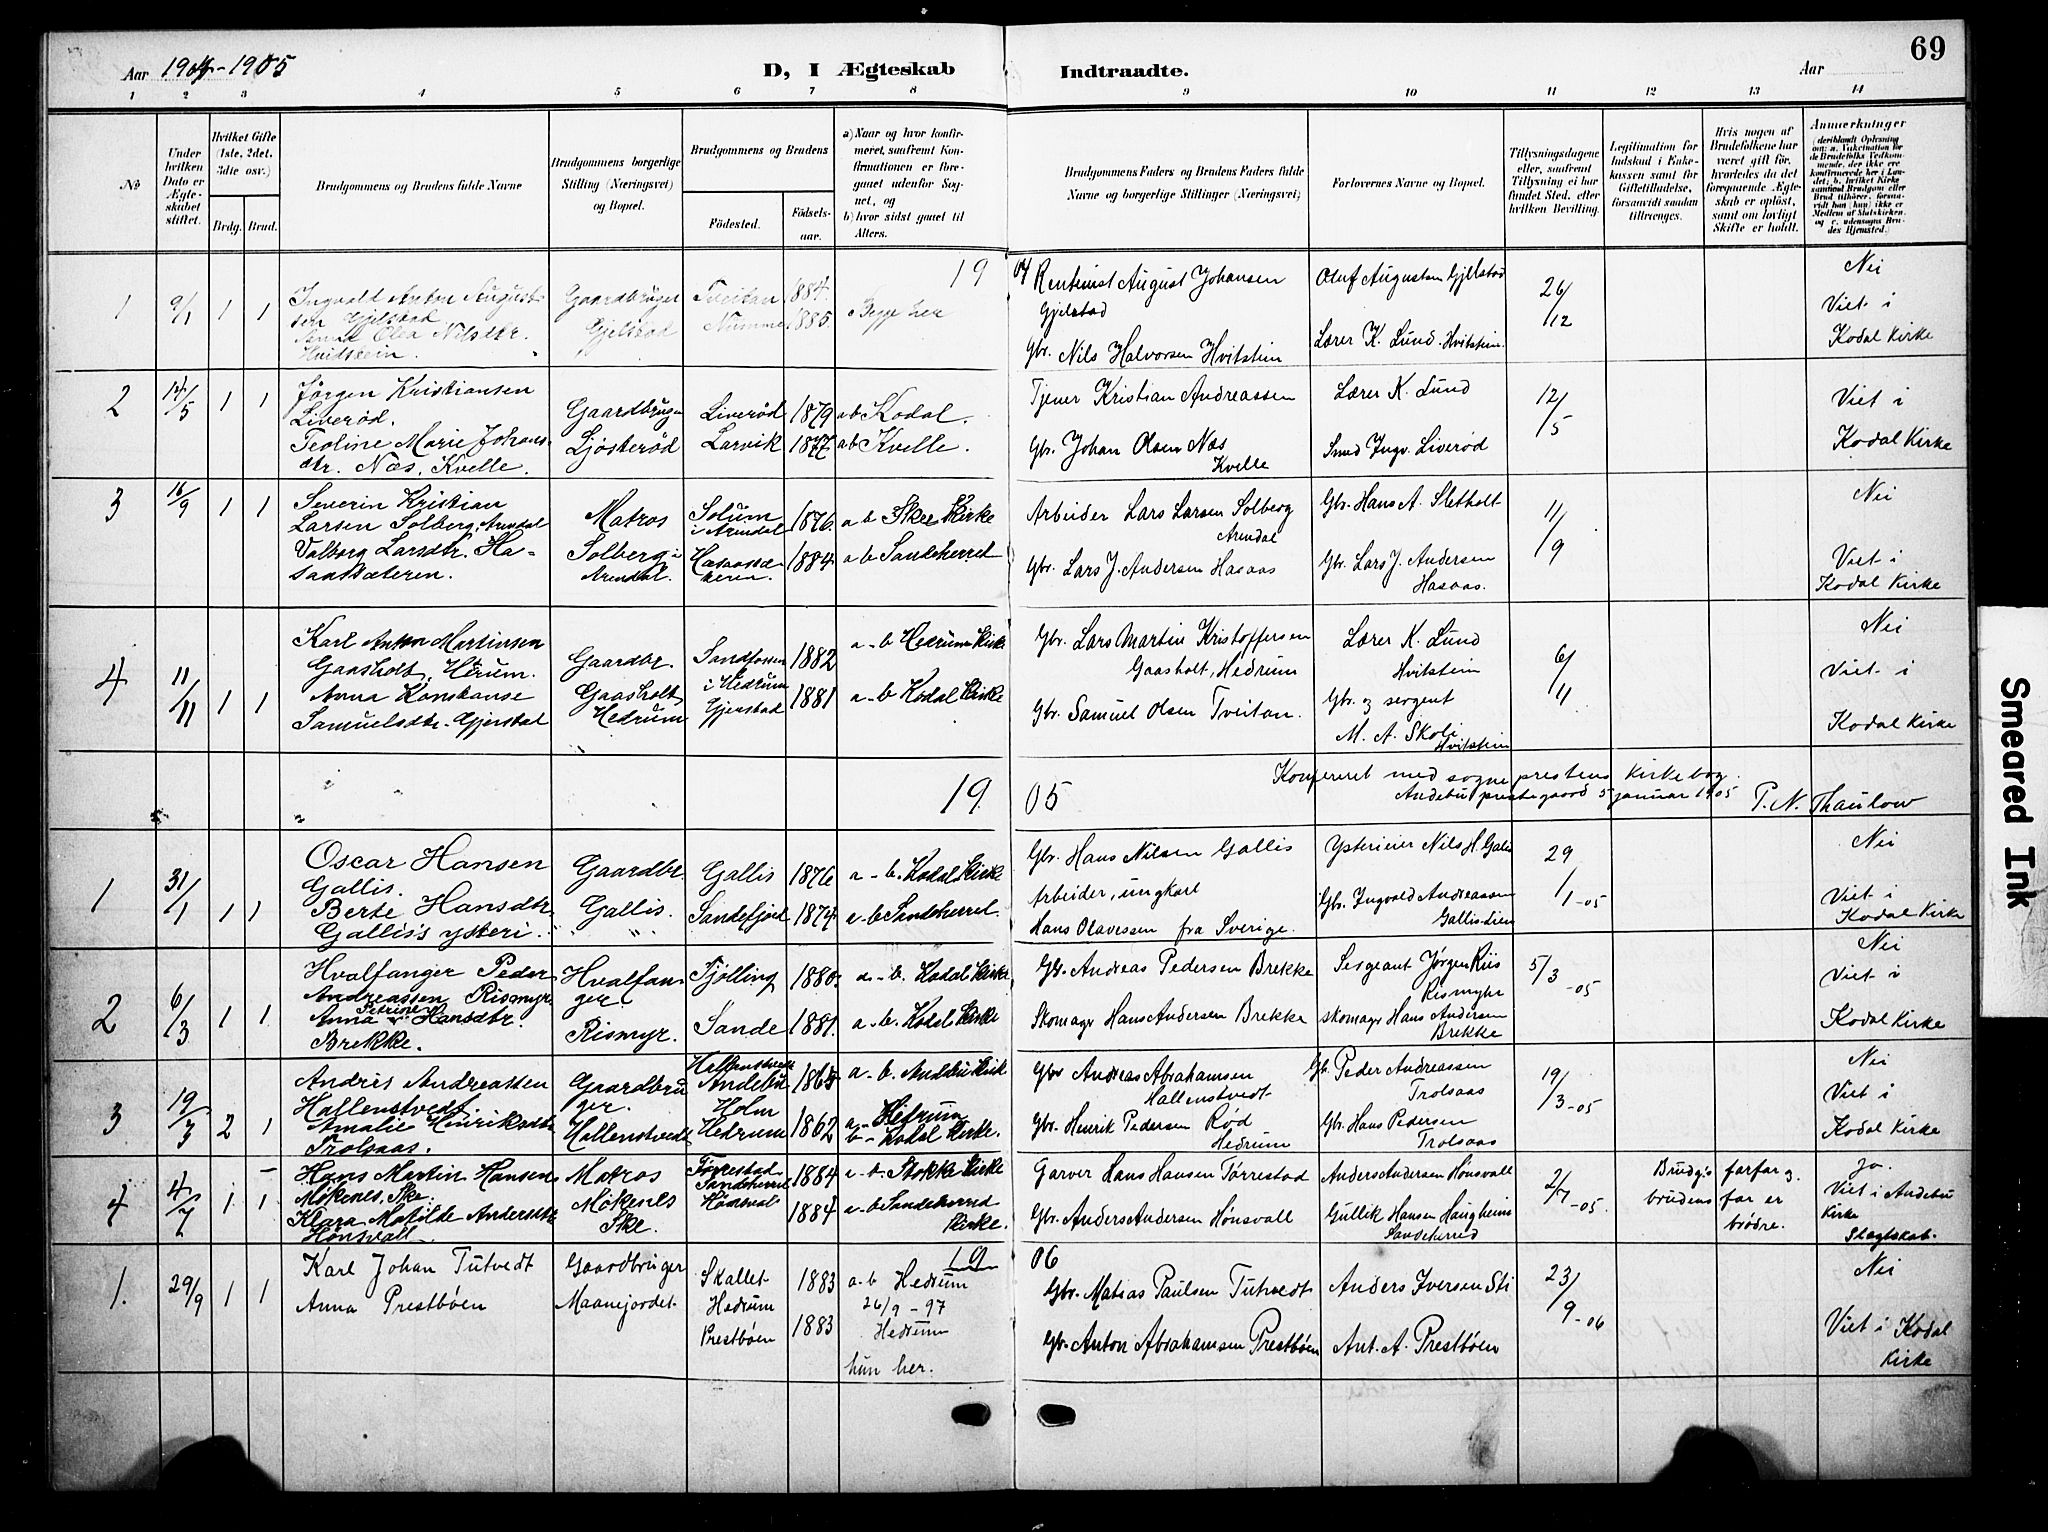 69
Aar 1904-1905
D, I Ægteskab
Indtraadte.
Aar
1 2 3 4 5 6 7 8 9 10 11 12 13 14
No
Under hvilken Dato er Ægteskabet stiftet.
Hvilket Gifte (1ste, 2det, 3die osv.)
Brdg. Brud.
Brudgommens og Brudens fulde Navne
Brudgommens borgerlige Stilling (Næringsvei) og Bopæl.
Brudgommens og Brudens
Fødested.
Fødselsaar.
a) Naar og hvor konfirmeret, saafremt Konfirmationen er foregaaet udenfor Sognet, og
b) hvor sidst gaaet til Alters.
Brudgommens Faders og Brudens Faders fulde Navne og borgerlige Stillinger (Næringsvei)
Forlovernes Navne og Bopæl.
Tillysningsdagene eller, saafremt Tillysning ei har fundet Sted, efter hvilken Bevilling.
Legitimation for Indskud i Enkekassen samt for Giftetilladelse, forsaavidt saadan tiltrænges.
Hvis nogen af Brudefolkene har været gift før, hvorledes da det foregaaende Ægteskab er opløst, samt om lovligt Skifte er holdt.
Anmerkninger
(deriblandt Oplysning om: a. Vakcination for de Brudefolks Vedkommende, der ikke ere konfirmerede her i Landet; b. hvilket Kirkesamfund Brudgom eller Brud tilhører, forsaavidt han (hun) ikke er Medlem af Statskirken, og c. udensogns Brudes Hjemsted.)
19
04
1
9/1
1
1
Ingvald Anton August-
sen Gjelstad
Olea Nilsdtr.
Hvidstein.
Gaardbruger
Gjelstad
Tveitan
Nummer
1884.
1885.
Begge her
Rentenist August Johansen
Gjelstad
Gbr. Nils Halvorsen Hvitstein
Oluf Augustsen Gjelstad
Lærer K. Lund. Hvitstein.
26/12
Nei
Viet i
Kodal Kirke
2
14/5
1
1
Jørgen Kristiansen
Liverød.
Teoline Marie Johans-
dtr. Næs, Kvelle.
Gaardbruger
Ljøsterød
Liverød
Larvik
1879
1877
a b Kodal.
a b Kvelle.
Tjener Kristian Andreassen
Gbr. Johan Olsen Næs
Kvelle
Lærer K. Lund
Smed Ingv. Liverød
12/5
Viet i
Kodal Kirke
3
16/9
1
1
Severin Kristian
Larsen Solberg, Arendal
Valborg Larsdtr. Ha-
saassæteren.
Matros
Solberg i
Arendal.
Solum
i Arendal
Hasaassæ-
teren.
1876.
1884.
a b Skee Kirke
a b Sandeherred
Arbeider Lars Larsen Solberg
Arendal
Gbr. Lars J. Andersen Hasaas
Gbr. Hans A. Sletholt
Gbr. Lars J. Andersen
Hasaas.
11/9
Nei
Viet i
Kodal Kirke
4
11/11
1
1
Karl Anton Martinsen
Gaasholt, Hedrum.
Anna Konstanse
Samuelsdtr. Gjerstad
Gaardbr.
Gaasholt
Hedrum
Sandfossen
i Hedrum
Gjerstad
1882
1881
a-b Hedrum Kirke
a-b Kodal Kirke
Gbr. Lars Martin Kristoffersen
Gaasholt, Hedrum
Gbr. Samuel Olsen Tveitan.
Lærer K. Lund
Hvitstein
Gbr. og sergent
M. A. Skoli
Hvitstein
6/11
Nei
Viet i
Kodal Kirke
19
05
Konfereret med sogneprestens kirkebog.
Andebu prestegaard 5 januar 1905 P. N. Thaulow
1
31/1
1
1
Oscar Hansen
Gallis.
Berte Hansdtr.
Gallis's ysteri.
Gaardbr.
Gallis.
Gallis
Sandefjord
1876
1874.
a-b. Kodal Kirke
a-b Sandeherred.
Gbr. Hans Nilsen Gallis
Arbeider, ungkarl
Hans Olavessen fra Sverige.
Ysterieier Nils H. Gallis
Gbr. Ingvald Andreassen
Gallis-lien
29/1-05
Nei
Viet i
Kodal Kirke
2
6/3
1
1
Hvalfanger Peder
Andreassen Rismyr
Anna Petrine Hansdtr.
Brekke.
Hvalfan-
ger
Rismyr.
Tjølling
Sande
1880.
1881.
a-b. Kodal Kirke
a-b. Kodal Kirke
Gbr. Andreas Pedersen Brekke
Skomager Hans Andersen Brekke
Sergeant Jørgen Riis
Rismyhr
skomager Hans Andersen
Brekke
5/3-05
Nei
Viet i
Kodal Kirke
3
19/3
2
1
Andris Andreassen
Hallenstvedt.
Amalie Henriksdtr.
Trolsaas.
Gaardbru-
ger.
Hallenstvedt
Hallenstvedt
Andebu
Holm
Hedrum
1865
1862
a-b. Andebu Kirke
a-Hedrum
b-Kodal Kirke.
Gbr Andreas Abrahamsen
Hallenstvedt
Gbr. Henrik Pedersen Rød
Hedrum
Gb. Peder Andreassen
Trolsaas
Gbr. Hans Pedersen
Trolsaas
19/3-05
Nei
Viet i
Kodal Kirke
4
4/7
1
1
Hans Martin Hansen
Møkenes, Ske.
Klara Matilde Andersdtr
Hønsvall
Matros
Møkenes
Ske
Tørrestad
Sandeherred
Hønsvall
1884
1884
a-b. Stokke Kirke
a-b Sandeherred
Kirke.
Garver Hans Hansen Tørrestad
Gbr. Anders Andersen Hønsvall
Anders Andersen Hønsvall
Gullik Hansen Haugheim
Sandeherred
2/7-05.
Brudg.s farfar og
brudens far er
brødre.
Ja.
Viet i Andebu
Kirke
Slagtskab.
19
06
1.
29/9
1
1
Karl Johan Tutvedt
Anna Prestbøen
Gaardbruger
Maanejordet.
Skallet
Hedrum
Prestbøen
1883
1883
a-b Hedrum
26/9-97
Hedrum
hun her.
Gbr. Matias Paulsen Tutvedt
Gbr. Anton Abrahamsen Prestbøen
Anders Iversen Sti
Ant. A. Prestbøen
23/9-06
Nei
Viet i Kodal
Kirke
Smeared Ink